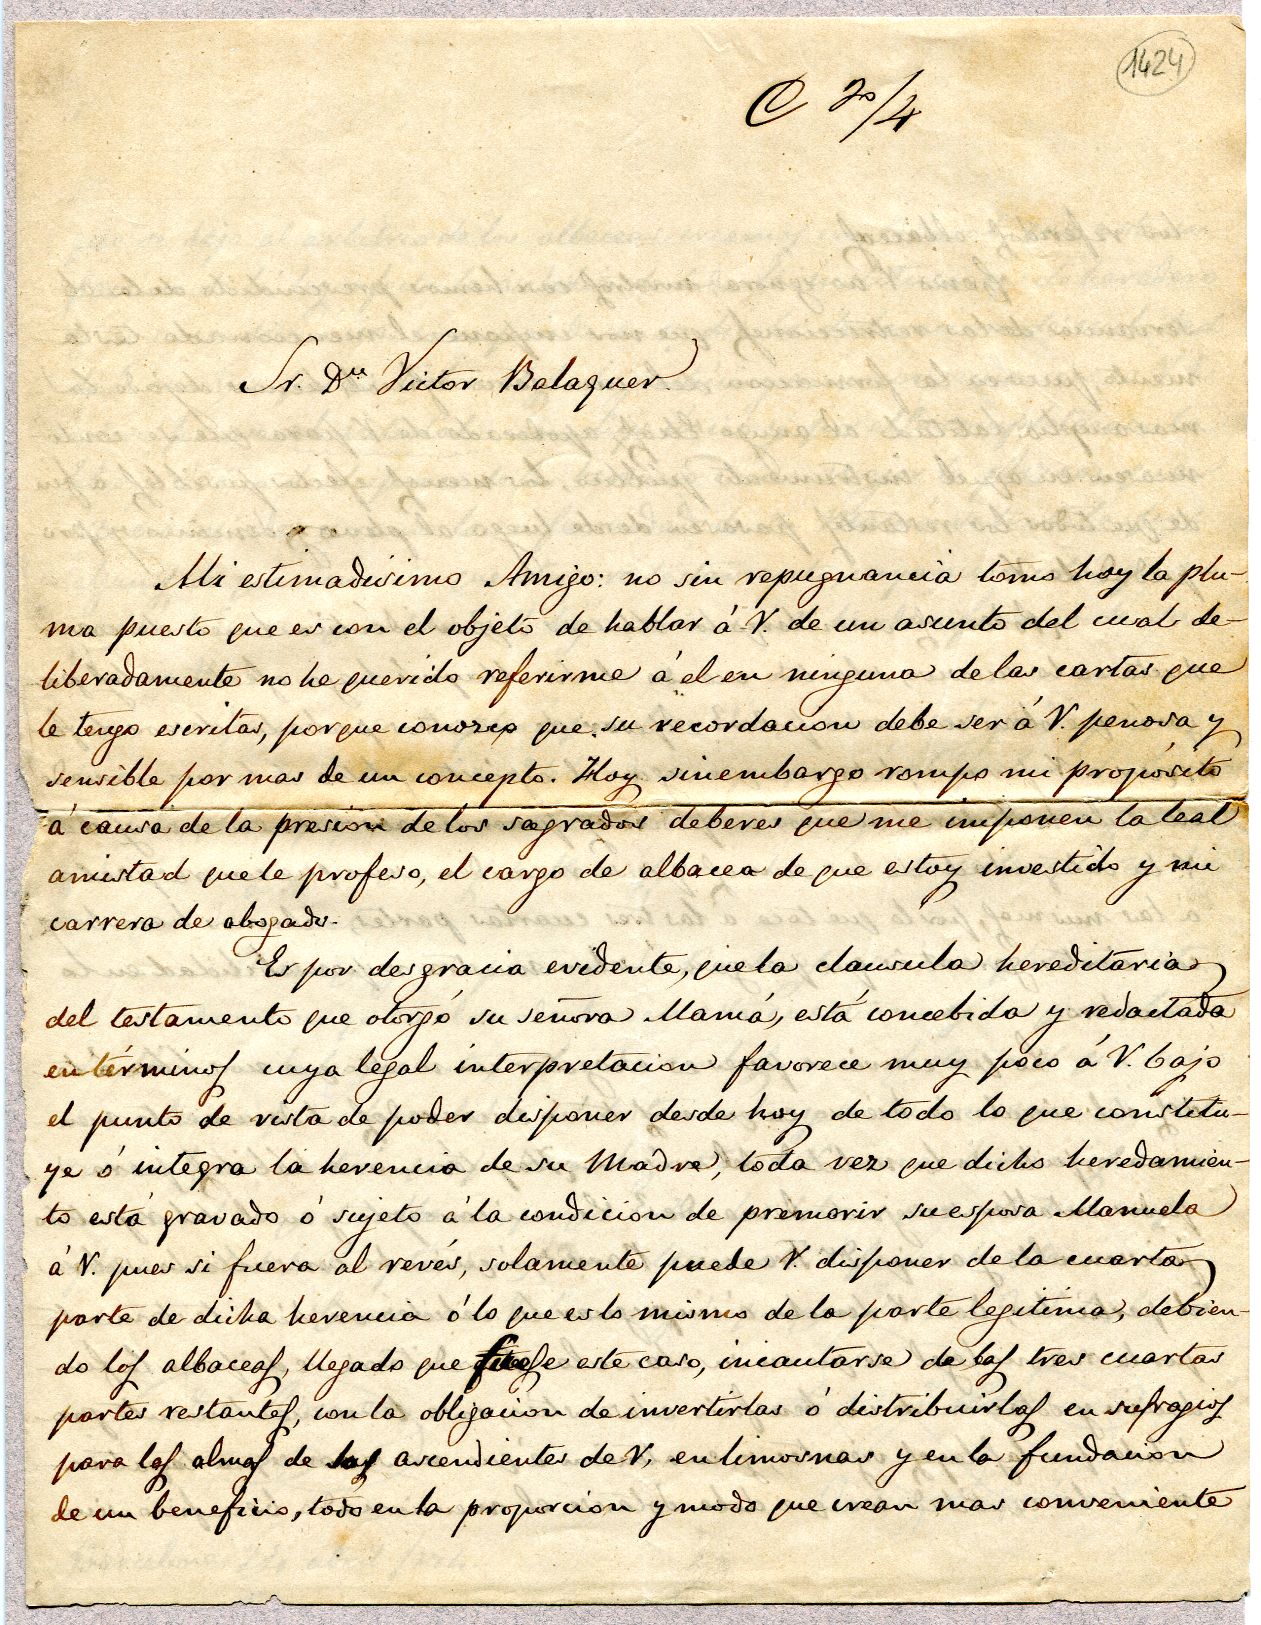 1424
C 20/4
Sr. Dn Victor Balaguer.
Mi estimadisimo Amigo: no sin repugnancia tomo hoy la plu-
ma puesto que es con el objeto de hablar á V. de un asunto del cual de-
liberadamente no he querido referirme á el en ninguna de las cartas que
le tengo escritas, porque conozco que su recordacion debe ser á V. penosa y
sensible por mas de un concepto. Hoy sinembargo rompo mi propósito
á causa de la presion de los sagrados deberes que me imponen la leal
amistad que le profeso, el cargo de albacea de que estoy investido y mi
carrera de abogado.
Es por desgracia evidente, que la clausula hereditaria
del testamento que otorgó su señora Mamá, está concebida y redactada
en términos cuya legal interpretacion favorece muy poco á V. bajo
el punto de vista de poder disponer desde hoy de todo lo que constitu-
ye ó integra la herencia de su Madre, toda vez que dicho heredamien-
to está gravado ó sujeto á la condicion de premorir su esposa Manuela
á V. pues si fuera al revés, solamente puede V. disponer de la cuarta
parte de dicha herencia ó lo que es lo mismo de la parte legitima, debien-
do los albaceas, llegado que fuese este caso, incautarse de las tres cuartas
partes restantes, con la obligacion de invertirlas ó distribuirlas en sufragios
para las almas de los ascendientes de V, en limosnas y en la fundacion
de un beneficio, todo en la proporcion y modo que crean mas conveniente